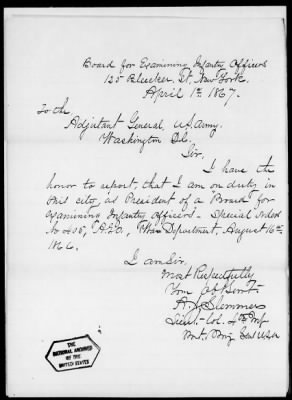 Board for Examining Infantry Officers
125 Bleecker St. New York.
April 1st 1867.
To the
Adjutant General, U.S. Army,
Washington D.C.
Sir,
I have the
honor to report, that I am on duty in
this city, as President of a "Board for
examining Infantry officers - Special Orders
No 405, A.G.O. War Department, August 16th
1866.
I am Sir,
Most Respectfully
Your Obt Servt
A. J. Slemmer
Lieut. Col. 4th Inf
Bvt. Brig Genl USA
THE
NATIONAL ARCHIVES
OF THE
UNITED STATES